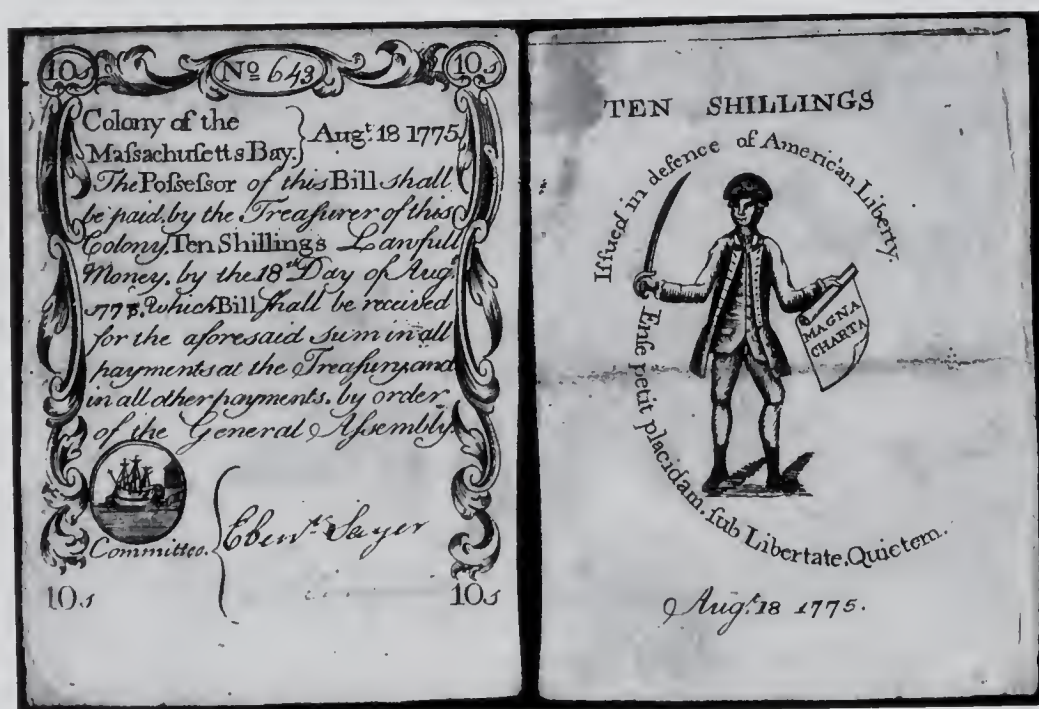 10s
Nº 643
10s
Colony of the
Maſsachuſetts Bay.
Augᵗ. 18 1775
The Poſseſsor of this Bill shall
be paid, by the Treaſurer of this
Colony, Ten Shillings Lawfull
Money, by the 18ᵗʰ Day of Augᵗ
which Bill ſhall be received
for the aforesaid sum in all
payments at the Treaſury, and
in all other payments, by order
of the General Aſsembly.
Committee.
Ebenʳ Sayer
10s
10s
TEN SHILLINGS
Iſſued in defence of American Liberty.
MAGNA
CHARTA
Enſe petit placidam, ſub Libertate, Quietem.
Augᵗ. 18 1775.